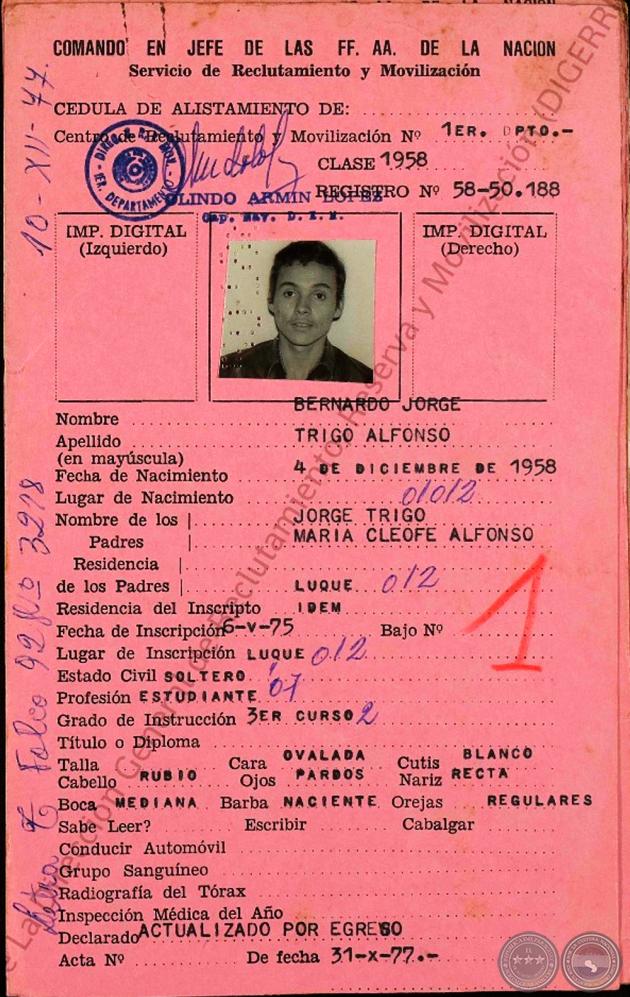 COMANDO EN JEFE DE LAS FF. AA. DE LA NACION
Servicio de Reclutamiento y Movilización
CEDULA DE ALISTAMIENTO DE:
Centro de Reclutamiento y Movilización Nº 1ER. DPTO.-
CLASE 1958
REGISTRO Nº 58-50.188
OLINDO ARMIN LOPEZ
Cap. Nav. D.E.M.
10-XII-77.
IMP. DIGITAL
(Izquierdo)
IMP. DIGITAL
(Derecho)
Nombre BERNARDO JORGE
Apellido TRIGO ALFONSO
(en mayúscula)
Fecha de Nacimiento 4 DE DICIEMBRE DE 1958
Lugar de Nacimiento 01012
Nombre de los JORGE TRIGO
Padres MARIA CLEOFE ALFONSO
Residencia
de los Padres LUQUE 012
Residencia del Inscripto IDEM
Fecha de Inscripción 6-V-75 Bajo Nº
1
Lugar de Inscripción LUQUE 012
Estado Civil SOLTERO
Profesión ESTUDIANTE 07
Grado de Instrucción 3ER CURSO 2
Título o Diploma
Talla Cara OVALADA Cutis BLANCO
Cabello RUBIO Ojos PARDOS Nariz RECTA
Boca MEDIANA Barba NACIENTE Orejas REGULARES
Sabe Leer? Escribir Cabalgar
Conducir Automóvil
Grupo Sanguíneo
Radiografía del Tórax
Inspección Médica del Año
Declarado ACTUALIZADO POR EGRESO
Acta Nº De fecha 31-X-77.-
Letra T Folio 92